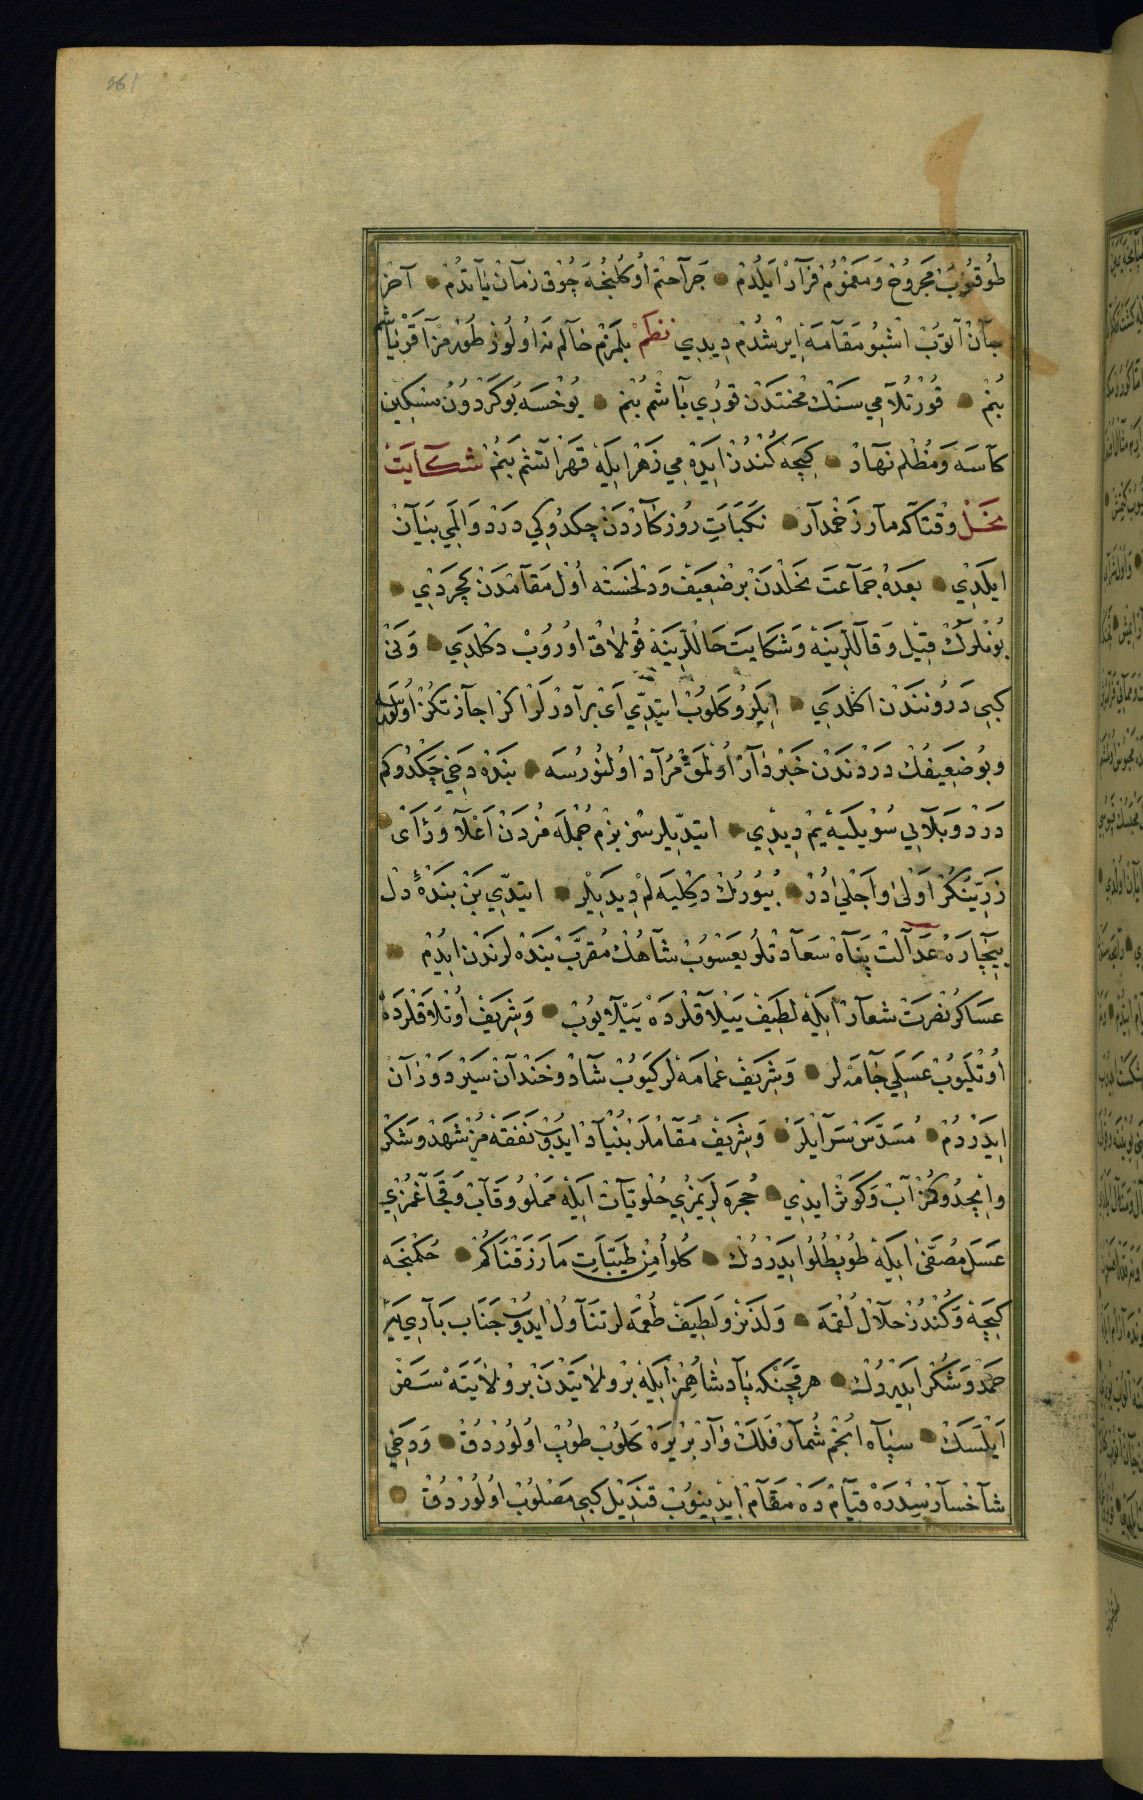 طوقنوب مجروح و مغموم فرار ايلدم جراحتم اوكلنجه چوق زمان ياتدم آخر
جان آلوب اشبو مقامه ايرشدم ديدي نظم بلمزم حالم نه اولور طورمز آقر ياشم
بنم قورتلامي سنك محنتدن قوري باشم بنم يوخسه بو گردون سنگين
كاسه و مظلم نهاد كيجه گندز ايده مي زهر ايله قهر آشم بنم شكايت
نحل وقتاكه مار زخمدار نكبات روزگاردن چكدوكي درد و المي بيان
ايلدي بعده جماعت نحلدن بر ضعيف و دلخسته اول مقامدن كچردي
بونلرك قيل و قاللرينه و شكايت حاللرينه قولاق اوروب دكلدي و ني
كبي درونندن اكلدي ايلرو كلوب ايتدي اي برادرلر اكر اجازتكز اولورسه
و بو ضعيفك دردندن خبردار اولمق مراد اولنورسه بنده دخي چكدوكم
درد و بلايي سويليه يم ديدي ايتديلر سز بزم جمله مزدن اعلا و رأي
زرينكز اولى و اجلى در بيورك دكليه لم ديديلر ايتدي بن بنده دل
بيچاره عدالت پناه سعادتلو يعسوب شاهك مقرب بنده لرندن ايدم
عساكر نصرت شعار ايله لطيف ييلاقلرده ييلايوب و شريف اوتلاقلرده
اوتليوب عسلي جامه لر و شريف عمامه لر كيوب شاد و خندان سير دوران
ايدردم مسدس سرايلر و شريف مقاملر بنياد ايدوب نفقه مز شهد و شكر
و ايچدوكز آب و كوثر ايدي حجره لريمزي حلويات ايله مملو و قاب و قجاغمزي
عسل مصفى ايله طوپطلو ايدردك كلوا من طيبات ما رزقناكم حكمنجه
كيجه و كندز حلال لقمه و لذيذ و لطيف طعمه لر تناول ايدوب جناب باري يه
حمد و شكر ايدردك هر قچنكه پادشاهمز ايله بر ولايتدن بر ولايته سفر
ايلسك سپاه انجم شمار فلك وار بر يره كلوب طوپ اولوردق و دخي
شاخسار سدره قيامده مقام ايدينوب قنديل كبي مصلوب اولوردق